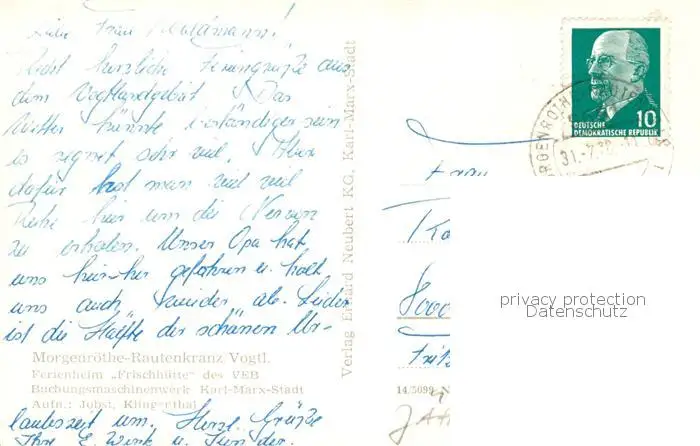 Liebe Frau
Recht herzliche Feriengrüße aus
dem Vogtlandgebiet. Das
Wetter könnte beständiger sein
es regnet sehr viel. Aber
dafür hat man viel viel
Ruhe hier um die Nerven
zu erholen. Unser Opa hat
uns hier-her gefahren u. holt
uns auch wieder ab. Leider
ist die Hälfte der schönen Ur-
Morgenröthe-Rautenkranz Vogtl.
Ferienheim „Frischhütte" des VEB
Buchungsmaschinenwerk Karl-Marx-Stadt
Aufn.: Jobst, Klingenthal
laubszeit um. Herzl. Grüße
Ihre E. u.
Verlag Erhard Neubert KG, Karl-Marx-Stadt
10
DEUTSCHE
DEMOKRATISCHE REPUBLIK
Frau
800
Fritz
14/5099 N
privacy protection
Datenschutz